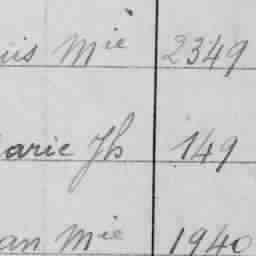 uis Mie 2349
arie Jh 149
an Mie 1940